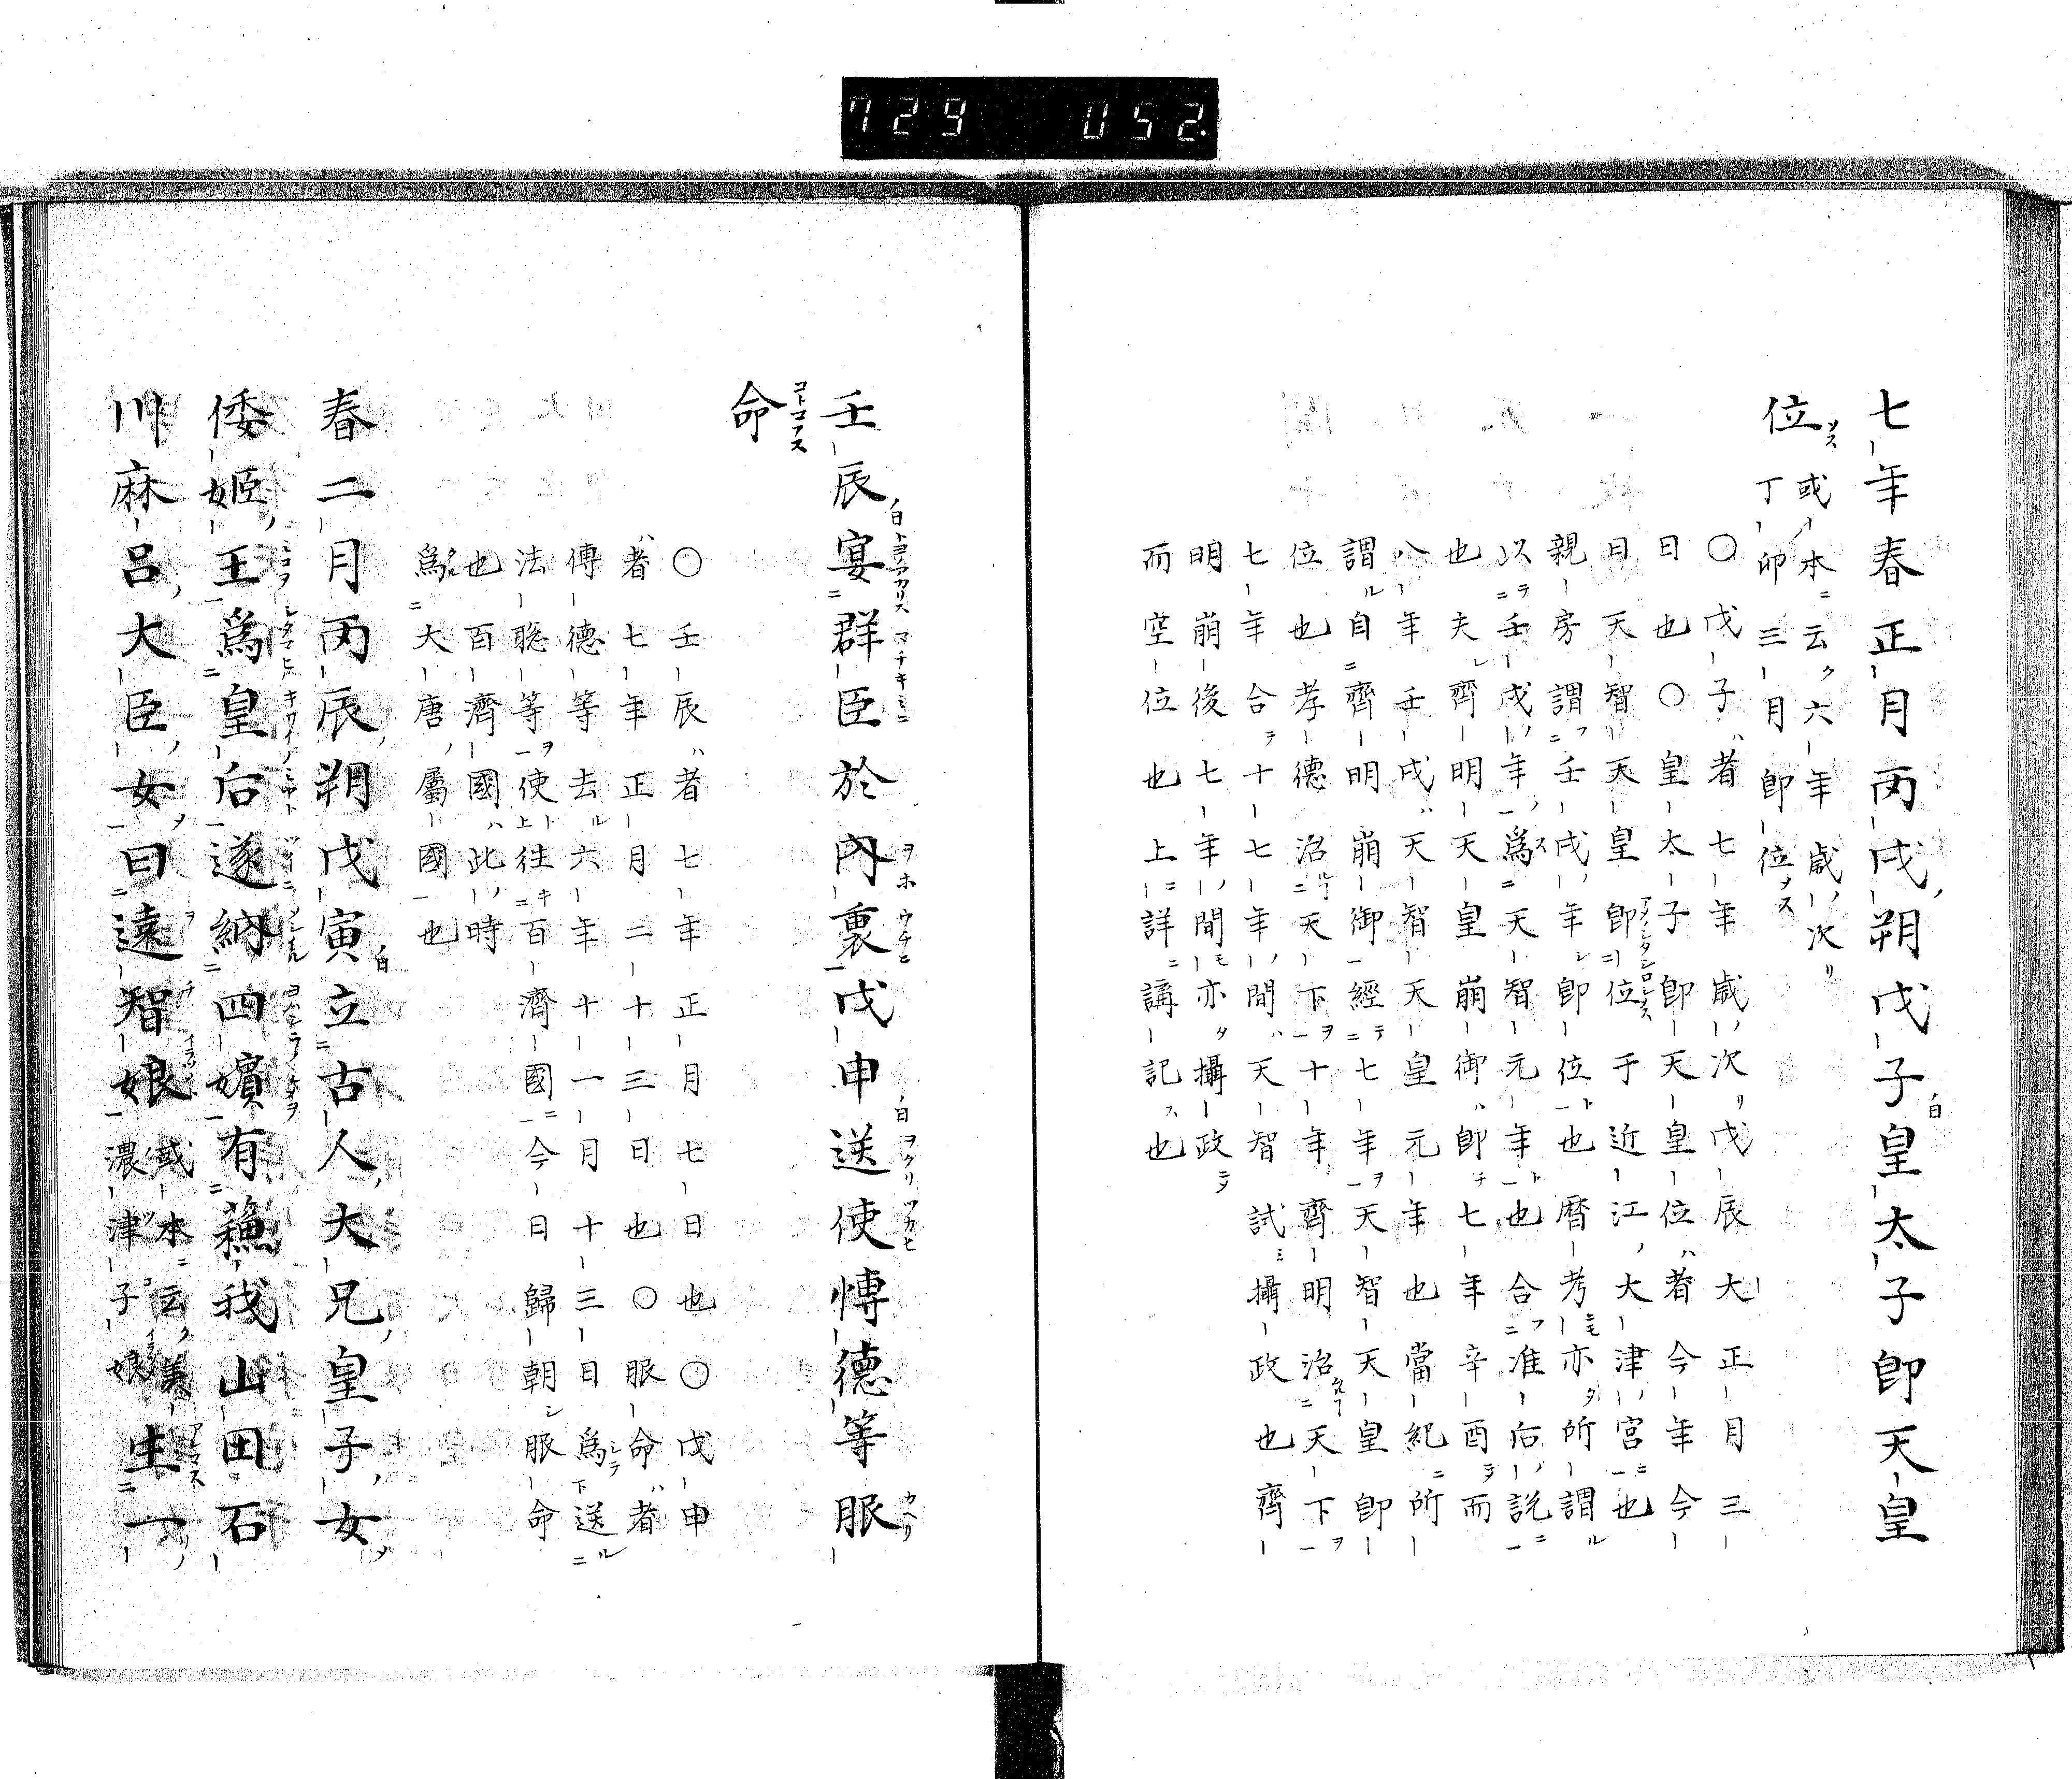 729 052
七年春正月丙戌朔戊子皇太子即天皇
位
或本云六年歳次
丁卯三月即位
〇戊子者七年歳次戊辰大正月三
日也〇皇太子即天皇位者今年今
日天智天皇即位于近江大津宮也
親房謂壬戌年即位也暦考亦所謂
以壬戌年為天智元年也合准后説
也夫齊明天皇崩御即七年辛酉而
八年壬戌天智天皇元年也當紀所
謂自齊明崩御經七年天智天皇即
位也孝德治天下十年齊明治天下
七年合十七年間天智試攝政也齊
明崩後七年間亦攝政
而空位也上詳講記也
壬辰宴群臣於内裏戊申送使博德等服
命
〇壬辰者七年正月七日也〇戊申
者七年正月二十三日也〇服命者
傳德等去六年十一月十三日為送
法聡等使往百濟國今日歸朝服命
也百濟國此時
為大唐屬國也
春二月丙辰朔戊寅立古人大兄皇子女
倭姬王為皇后遂納四嬪有蘓我山田石
川麻呂大臣女曰遠智娘
或本云美
濃津子娘
生一